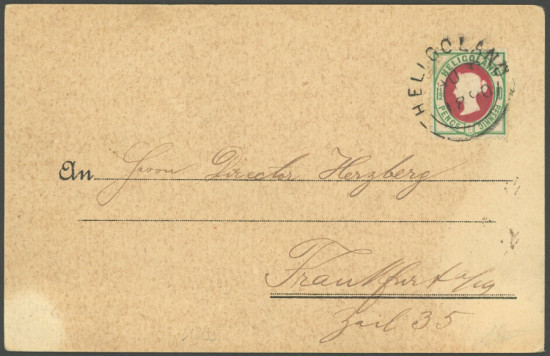 HELIGOLAND
HELIGOLAND
PENCE
PFENNIG
An Herrn Director Herzberg
Frankfurt a/M
Zeil 35